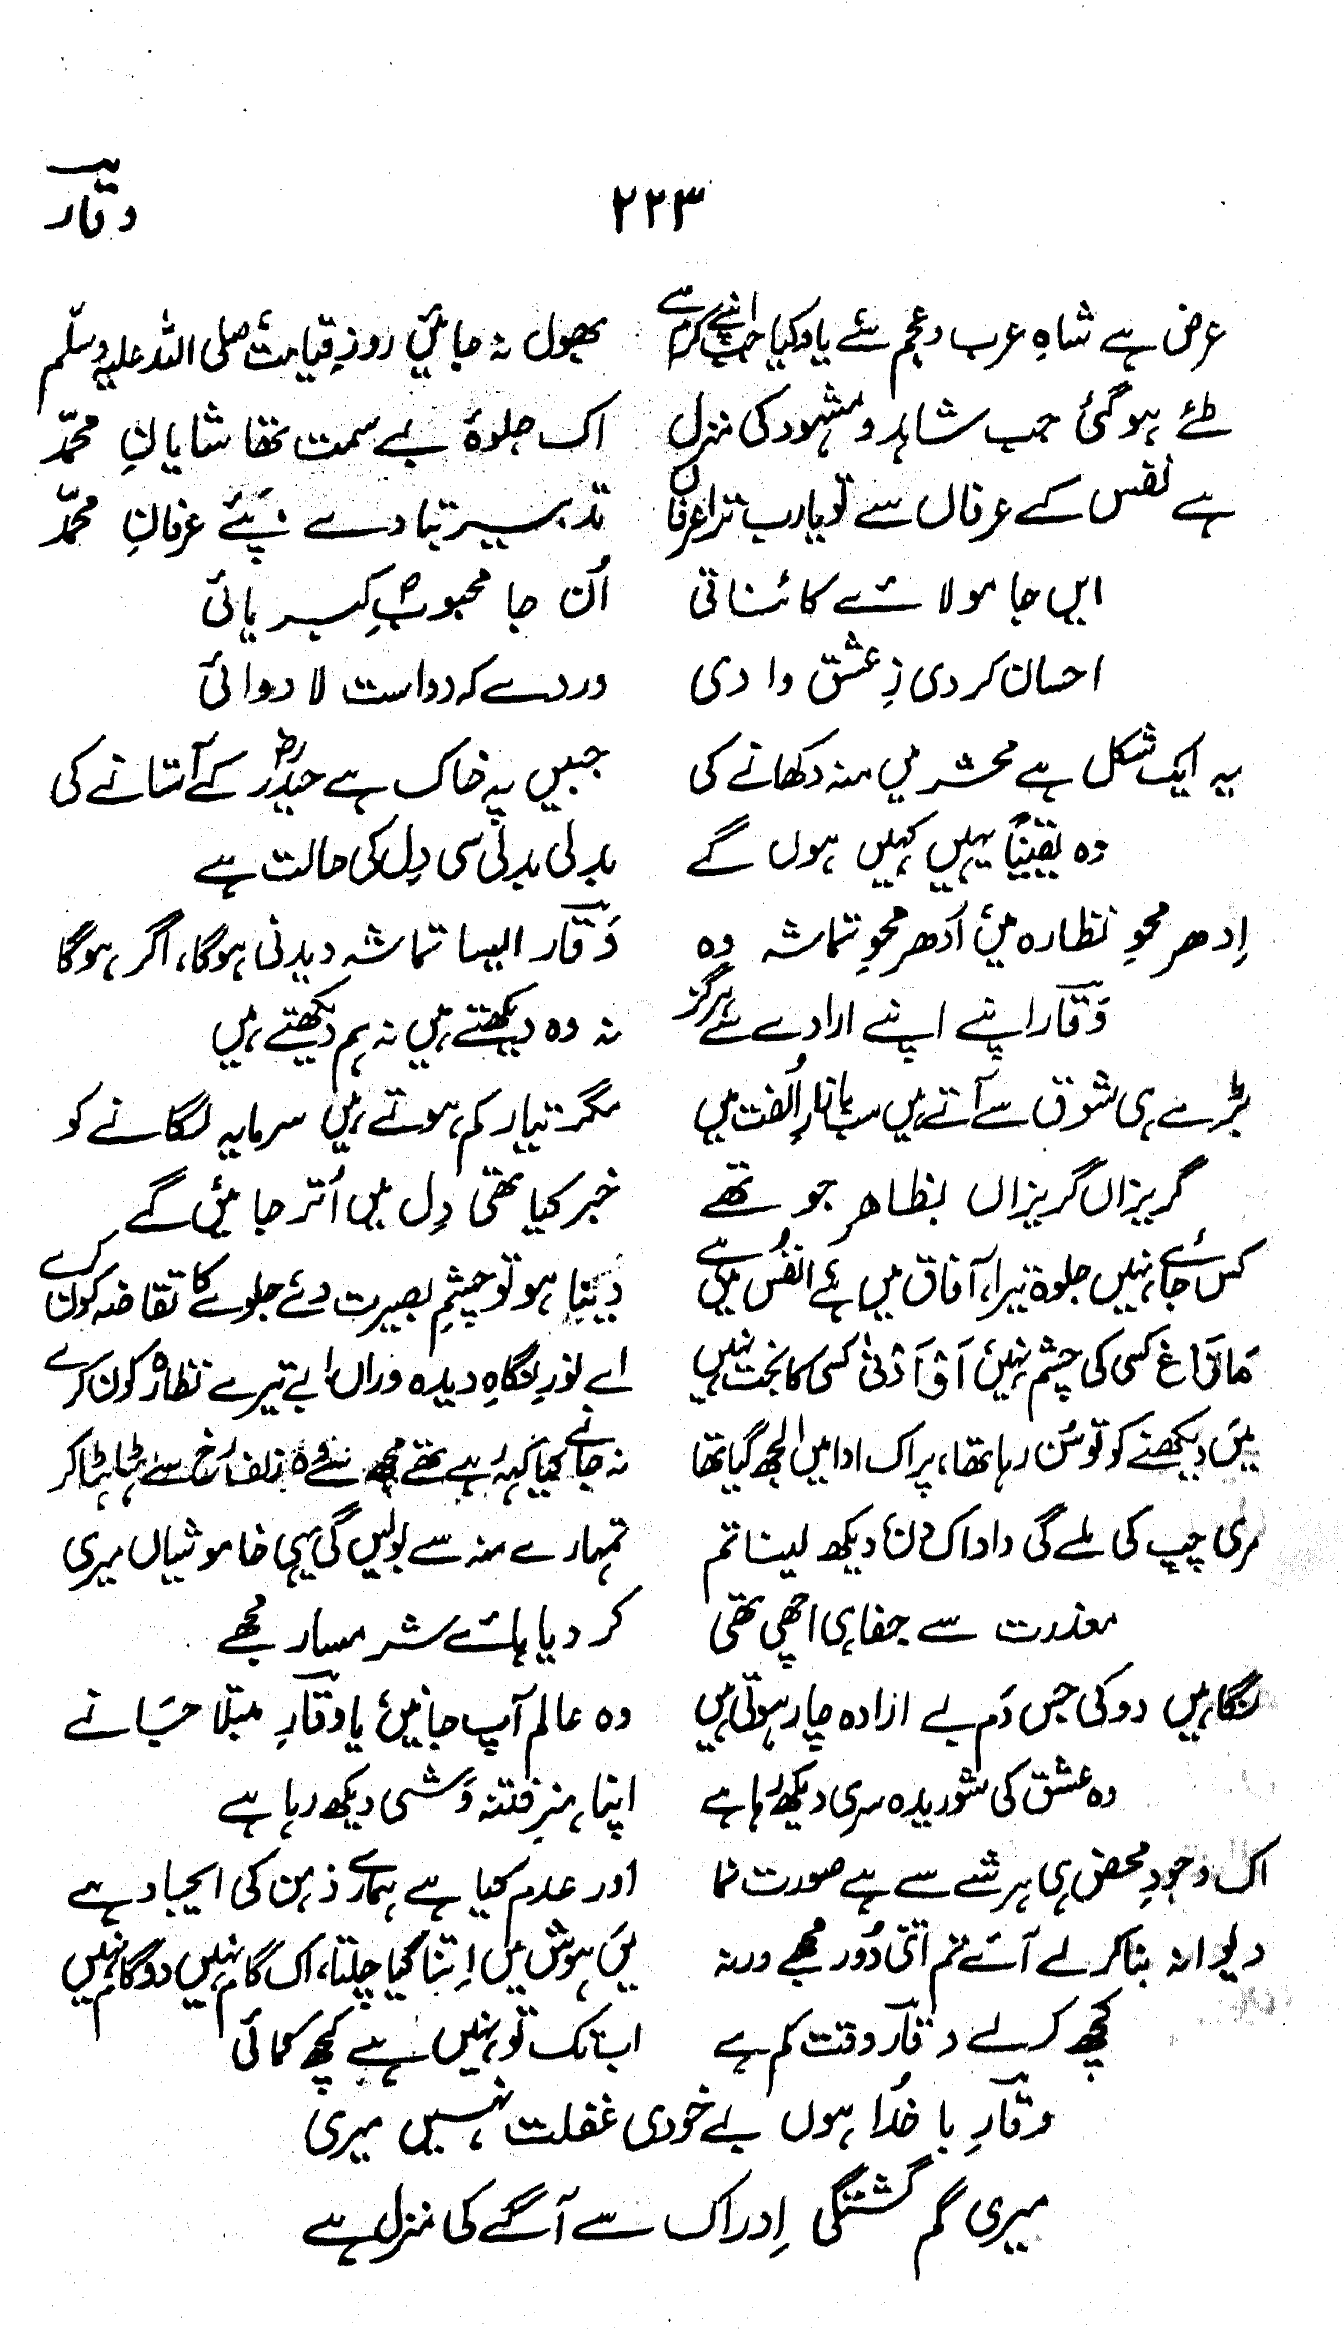 ۲۲۳ وقارؔ
عرض ہے شاہِ عرب و عجم سے یاد کیا جب اپنے کرم سے بھول نہ جائیں روزِ قیامت صلی اللہ علیہ وسلم
طے ہو گئی جب شاہد و مشہود کی منزل اک جلوۂ بے سمت تھا شایانِ محمدؐ
ہے نفس کے عرفاں سے تو یارب ترا عرفاں تدبیر بتا دے پئے عرفانِ محمدؐ
ایں جا مولائے کائناتی اُن جا محبوبِؐ کبریائی
احسان کردی زِ عشق دادی دردے کہ دواست لا دوائی
یہ ایک شکل ہے محشر میں منہ دکھانے کی جبیں پہ خاک ہے حیدرؓ کے آستانے کی
وہ یقیناً یہیں کہیں ہوں گے بدلی بدلی سی دِل کی حالت ہے
اِدھر محوِ نظارہ میں اُدھر محوِ تماشہ وہ وَقارؔ ایسا تماشہ دیدنی ہوگا، اگر ہوگا
وَقارؔ اپنے اپنے ارادے سے ہرگز نہ وہ دیکھتے ہیں نہ ہم دیکھتے ہیں
بڑے ہی شوق سے آتے ہیں سب بازارِ اُلفت میں مگر تیار کم ہوتے ہیں سرمایہ لگانے کو
گریزاں گریزاں بظاہر جو تھے خبر کیا تھی دِل میں اُتر جائیں گے
کس جائے نہیں جلوہ تیرا، آفاق میں ہے انفُس میں ہے بینا ہو تو چشمِ بصیرت دے جلوے کا تقاضہ کون کرے
مَازَاغ کسی کی چشم نہیں اَوْ اَدْنیٰ کسی کا بخت نہیں اے نورِ نگاہِ دیدہ وراں! بے تیرے نظارہ کون کرے
میں دیکھنے کو تو سُن رہا تھا، پر اک ادا میں الجھ گیا تھا نہ جانے کیا کہہ رہے تھے مجھ سے وہ زلف رُخ سے ہٹا ہٹا کر
مری چپ کی ملے گی داد اک دن دیکھ لینا تم تمہارے منہ سے بولیں گی یہی خاموشیاں میری
معذرت سے جفا ہی اچھی تھی کر دیا ہائے شرمسار مجھے
نگاہیں دو کی جس دَم بے ارادہ چار ہوتی ہیں وہ عالم آپ جانیں یا وقارِؔ مبتلا جانے
وہ عشق کی شوریدہ سری دیکھ رہا ہے اپنا ہنرِ فتنہ وَشی دیکھ رہا ہے
اک وجودِ محض ہی ہر شے سے ہے صورت نما اور عدم کیا ہے ہمارے ذہن کی ایجاد ہے
دیوانہ بنا کر لے آئے تم اتنی دُور مجھے ورنہ میں ہوش میں اِتنا کیا چلتا، اک گام نہیں دو گام نہیں
کچھ کر لے وقارؔ وقت کم ہے اب تک تو نہیں ہے کچھ کمائی
وقارِؔ با خُدا ہوں بے خودی غفلت نہیں میری
میری گم گشتگی اِدراک سے آگے کی منزل ہے